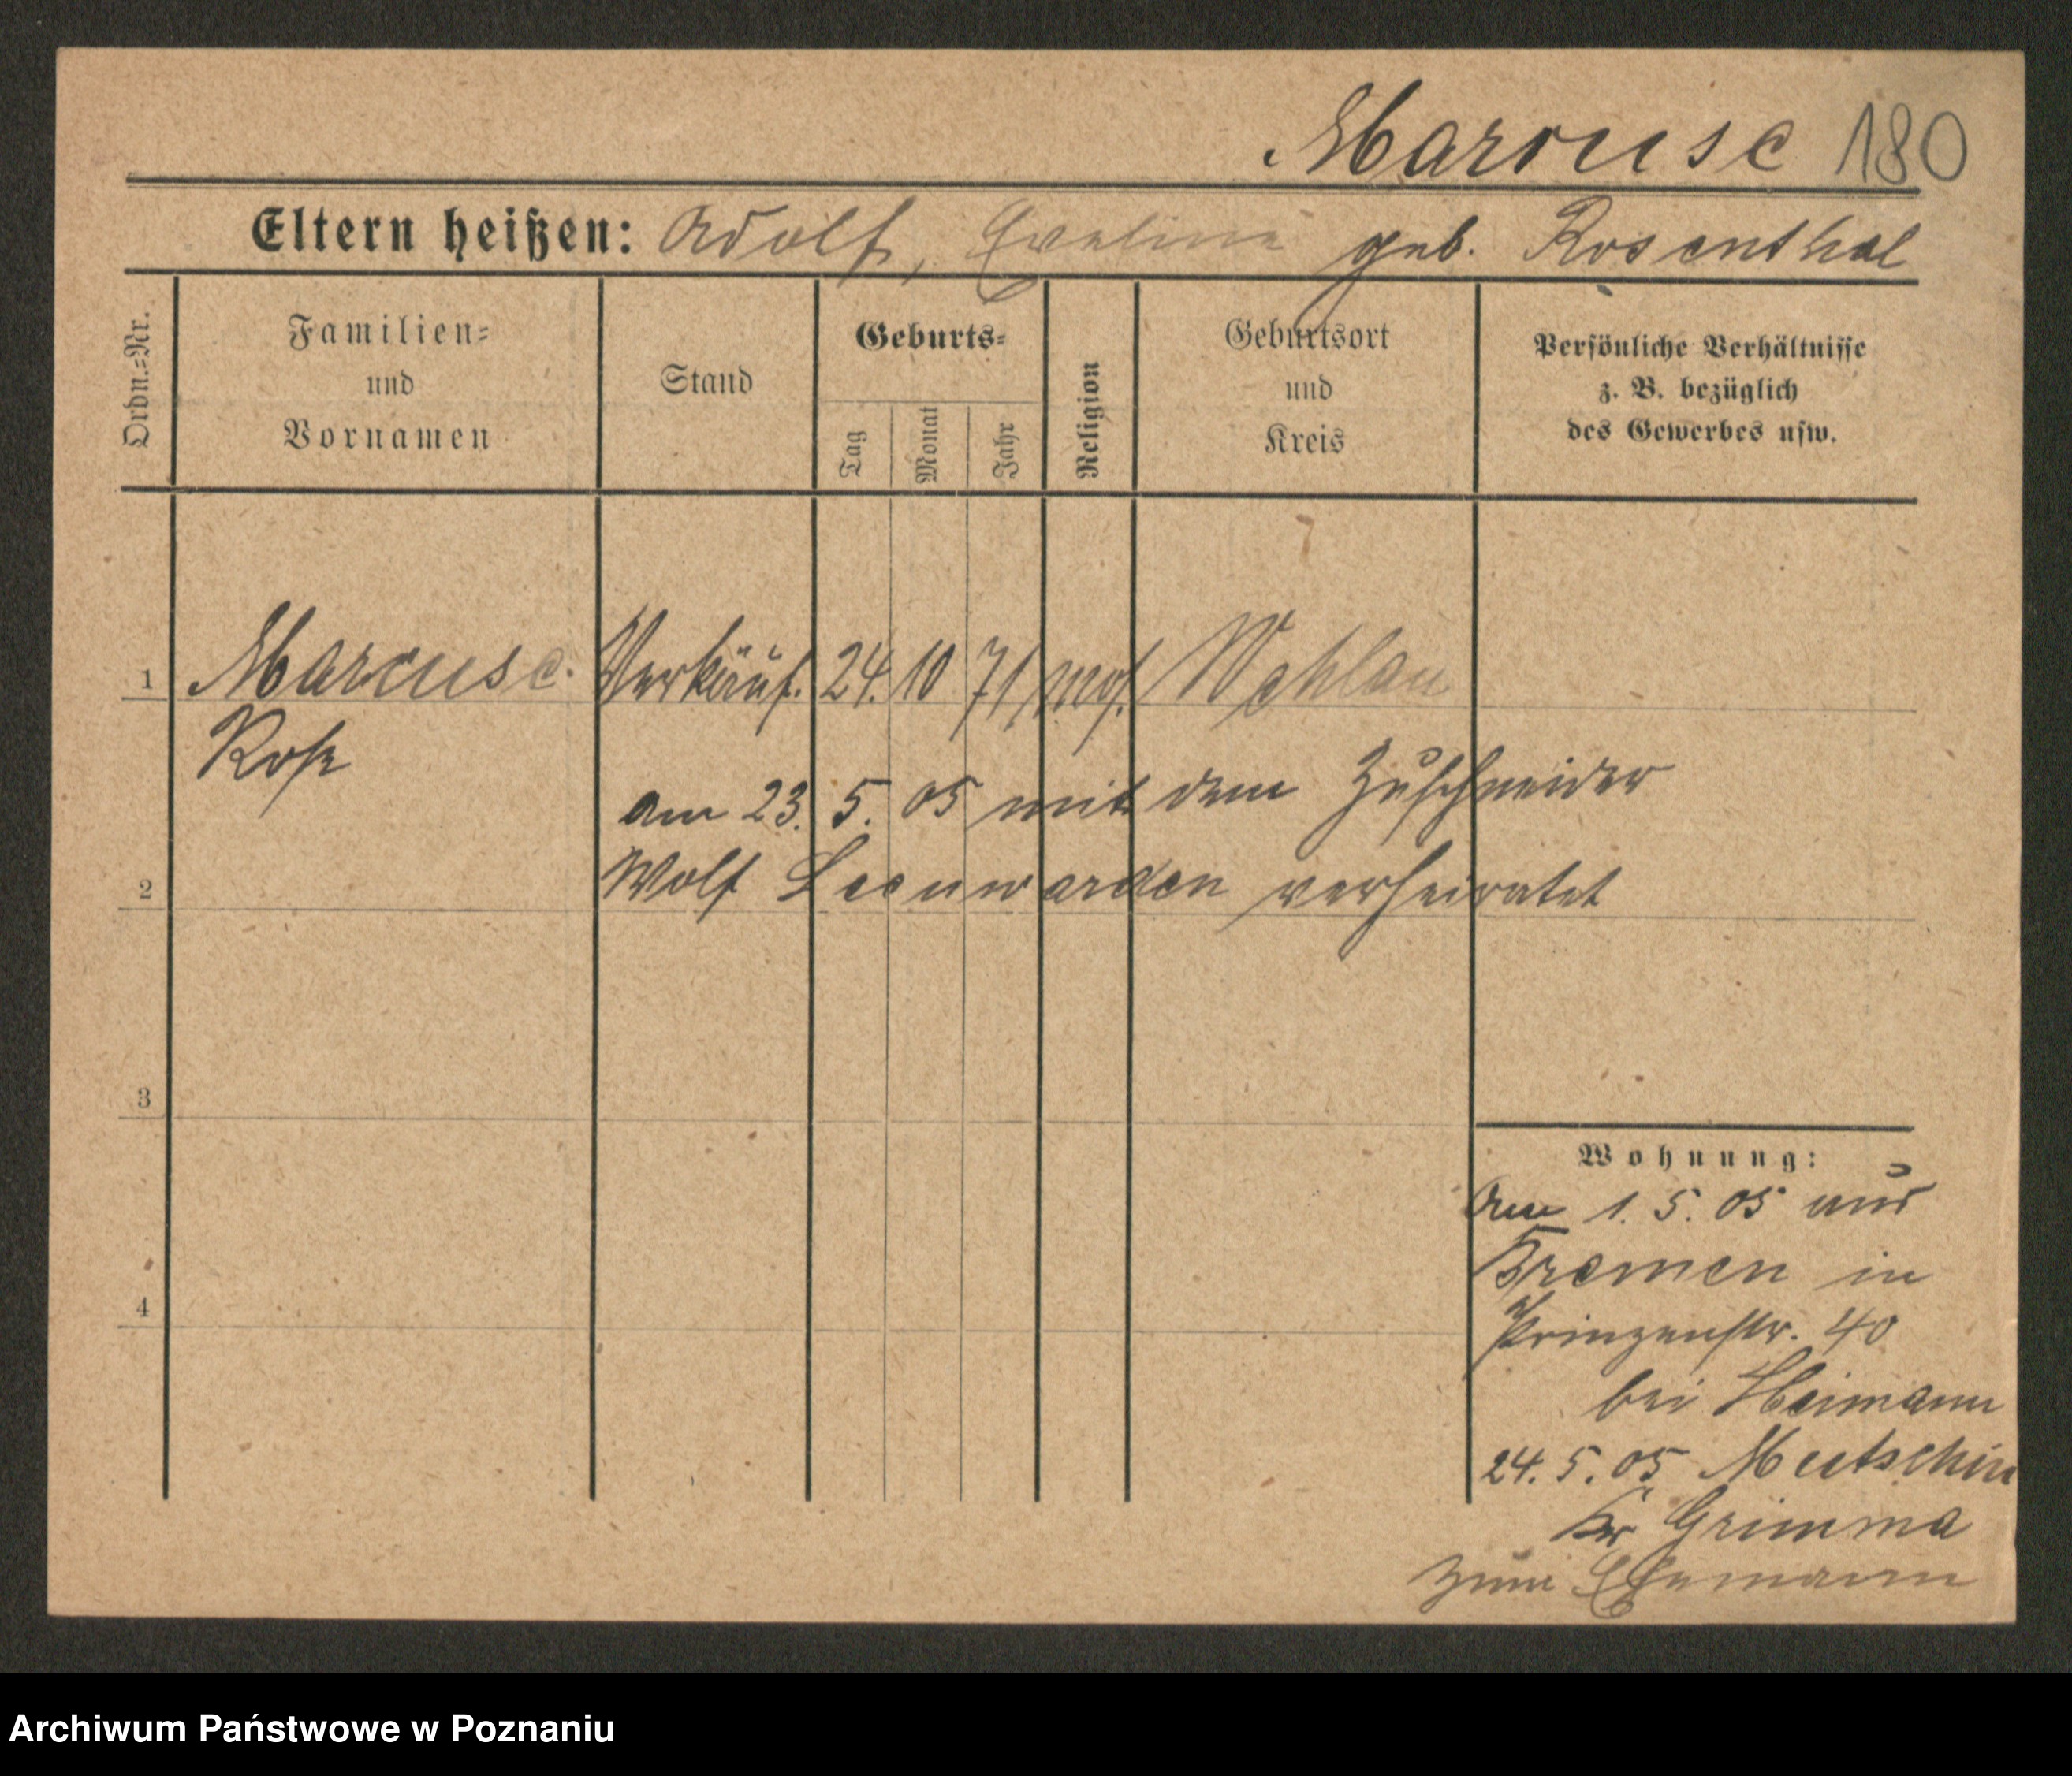 Marcuse 180
Eltern heißen: Adolf, Eveline geb. Rosenthal
Ordn.=Nr.
Familien=
und
Vornamen
Stand
Geburts=
Tag
Monat
Jahr
Religion
Geburtsort
und
Kreis
Persönliche Verhältnisse
z. B. bezüglich
des Gewerbes usw.
1 Marcuse Verkäuf. 24. 10 71 mos. Wehlau
Rosa
am 23. 5. 05 mit dem Zuschneider
2 Wolf Leeuwarden verheiratet
3
Wohnung:
Am 1. 5. 05 aus
Bremen in
4
Prinzenstr. 40
bei Heimann
24. 5. 05 Mutschen
Kr Grimma
zum Ehemann
Archiwum Państwowe w Poznaniu